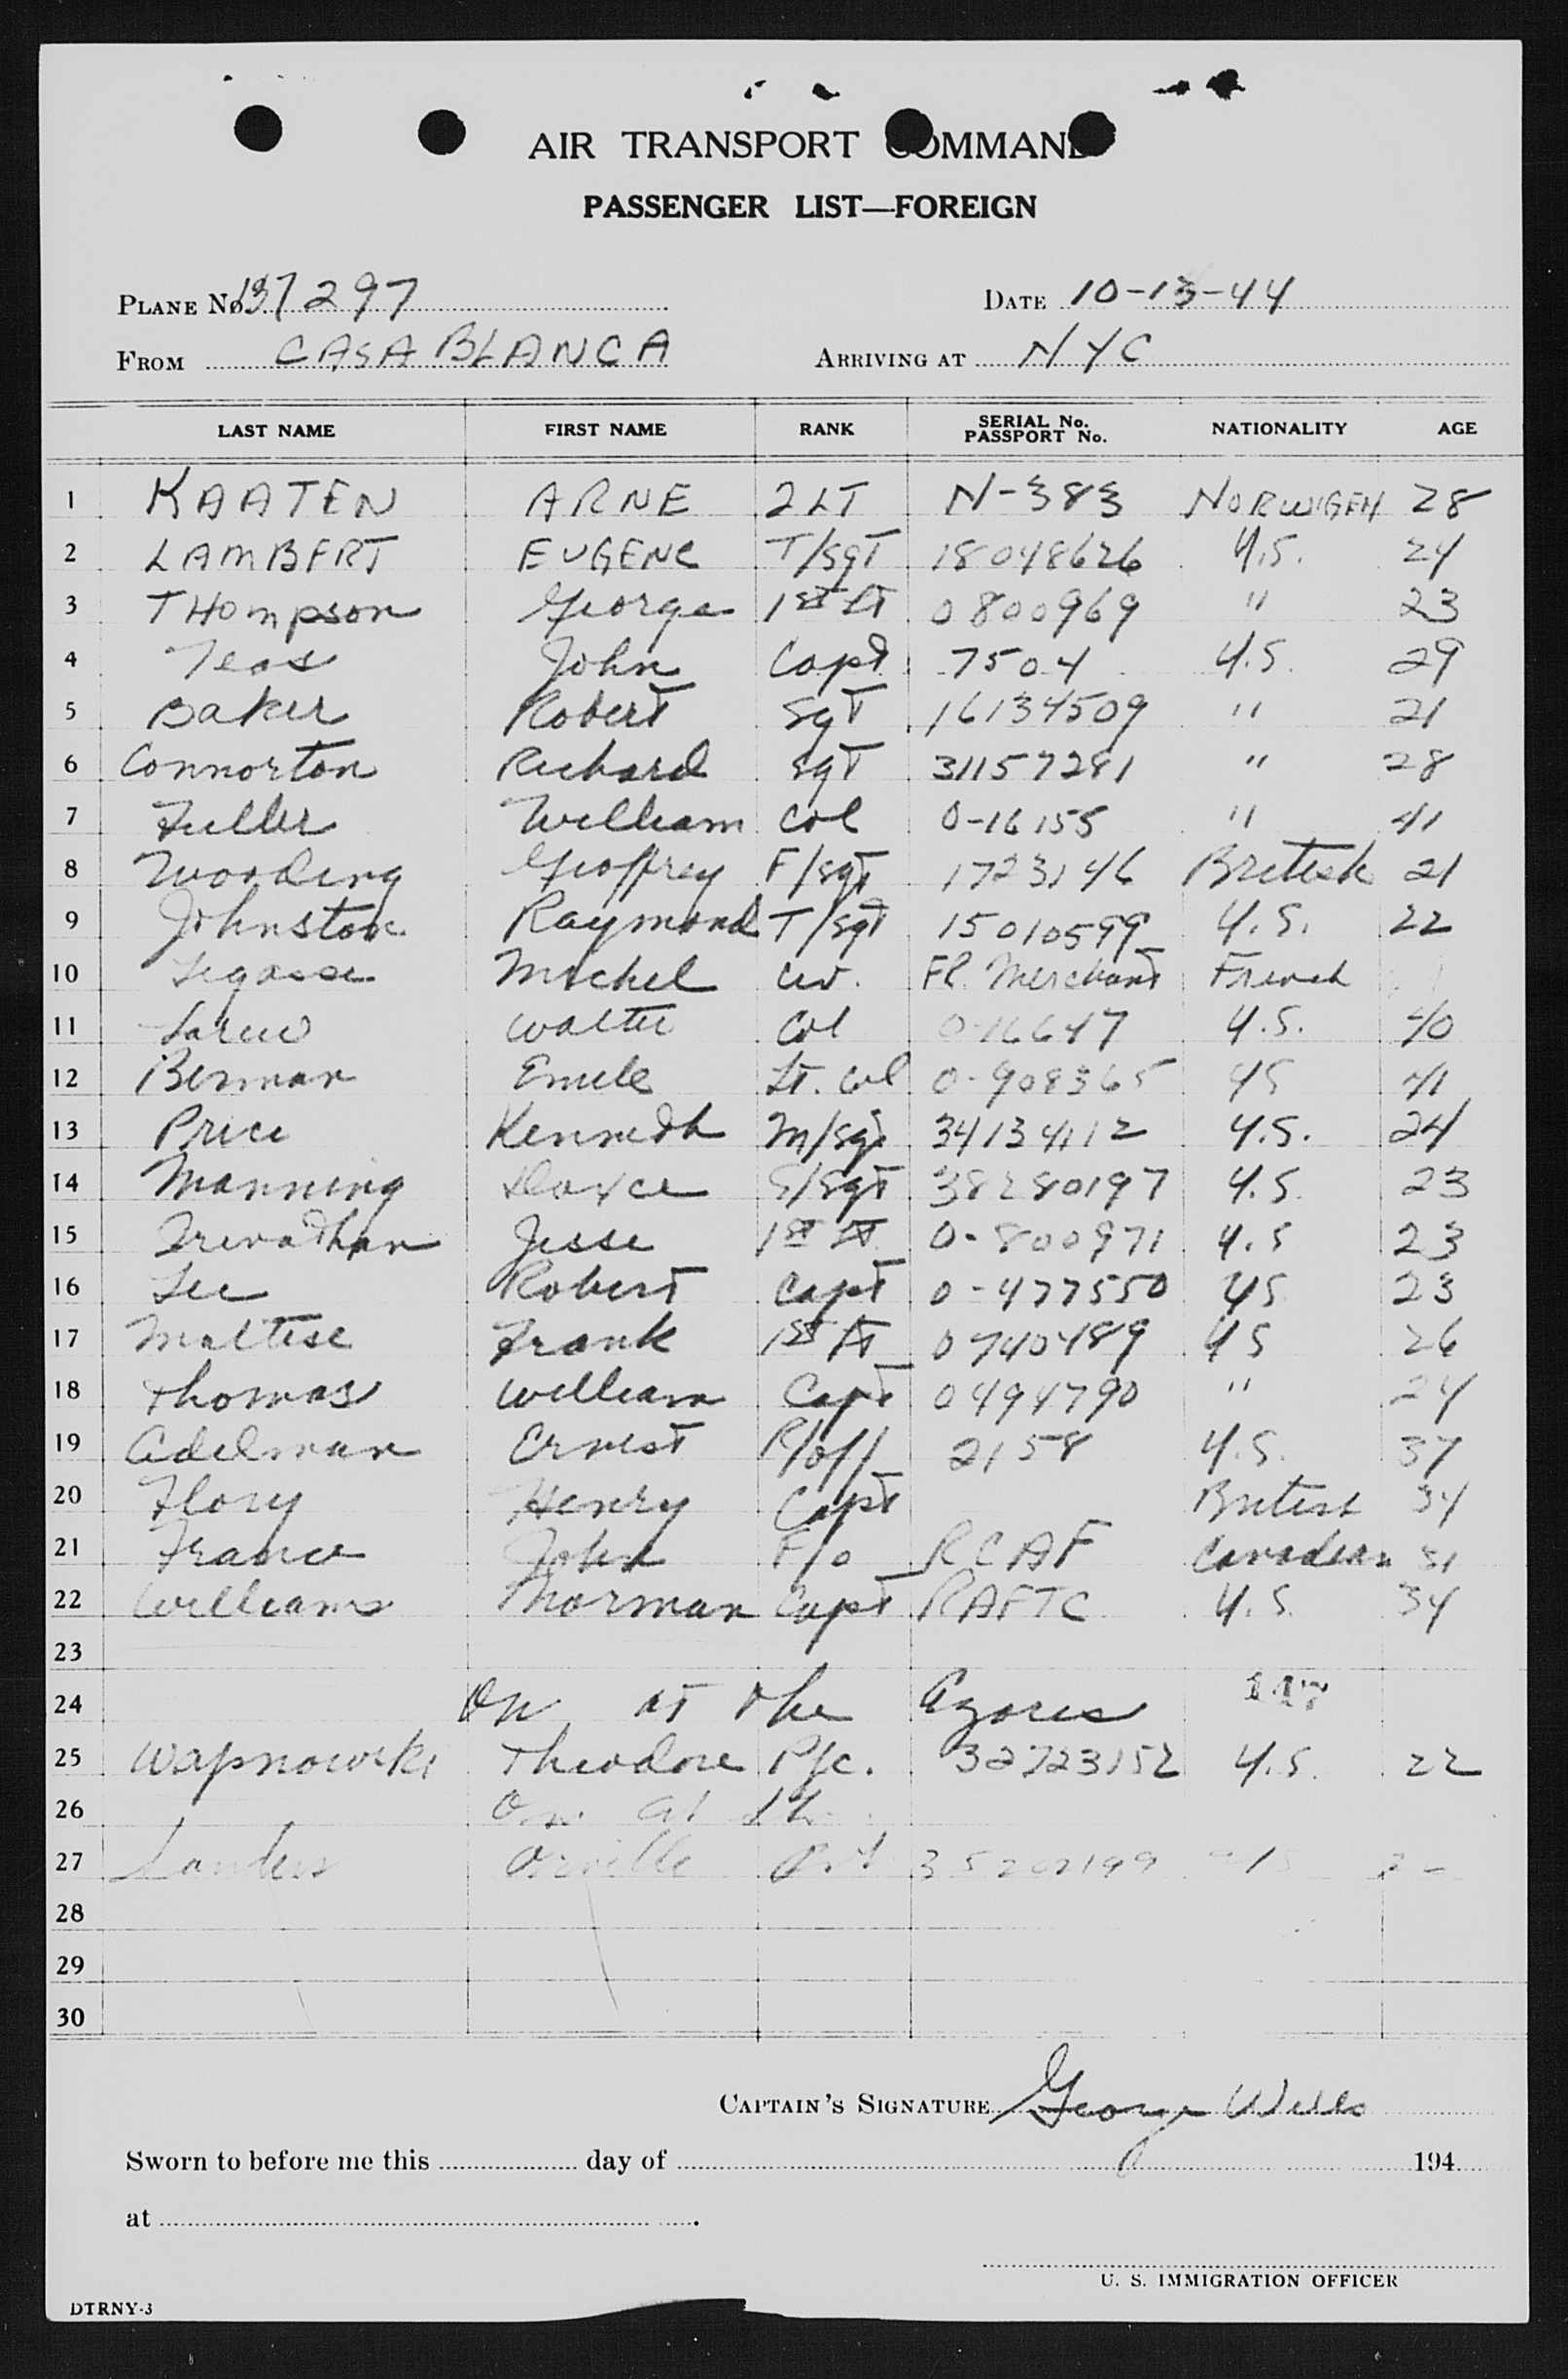 AIR TRANSPORT COMMAND
PASSENGER LIST—FOREIGN
PLANE No. 137297 DATE 10-13-44
FROM CASABLANCA ARRIVING AT NYC
LAST NAME FIRST NAME RANK SERIAL No. PASSPORT No. NATIONALITY AGE
1 KAATEN ARNE 2 LT N-383 NORWIGEN 28
2 LAMBERT EUGENE T/SGT 18048626 U.S. 24
3 THOmpson George 1st Lt 0800969 " 23
4 Teas John Capt 7504 U.S. 29
5 Baker Robert Sgt 16134509 " 21
6 Connorton Richard Sgt 31157281 " 28
7 Fuller William Col 0-16155 " 41
8 Wooding Geoffrey F/sgt 1723146 British 21
9 Johnston Raymond T/sgt 15010599 U.S. 22
10 Segasse Michel Civ. Fl. Merchant French
11 Larew Walter Col 0-16647 U.S. 40
12 Berman Emile Lt. Col 0-908365 US 41
13 Price Kenneth M/sgt 34134112 U.S. 24
14 Manning S/Sgt 38280197 U.S. 23
15 Trevathan Jesse 1st Lt 0-800971 U.S 23
16 Lee Robert Capt 0-477550 US 23
17 Maltese Frank 1st Lt 0740489 US 26
18 Thomas William Capt 0494790 " 24
19 Adelman Ernest R/off 2158 U.S. 37
20 Flory Henry Capt British 34
21 France John F/o RCAF Canadian 31
22 Williams Norman Capt RAFTC U.S. 34
23
24 On at the Azores
25 Wapnowski Theodore Pfc. 32723152 U.S. 22
26 On at
27 Orville Pvt
28
29
30
CAPTAIN'S SIGNATURE George Wells
Sworn to before me this day of 194
at .
U. S. IMMIGRATION OFFICER
DTRNY-3